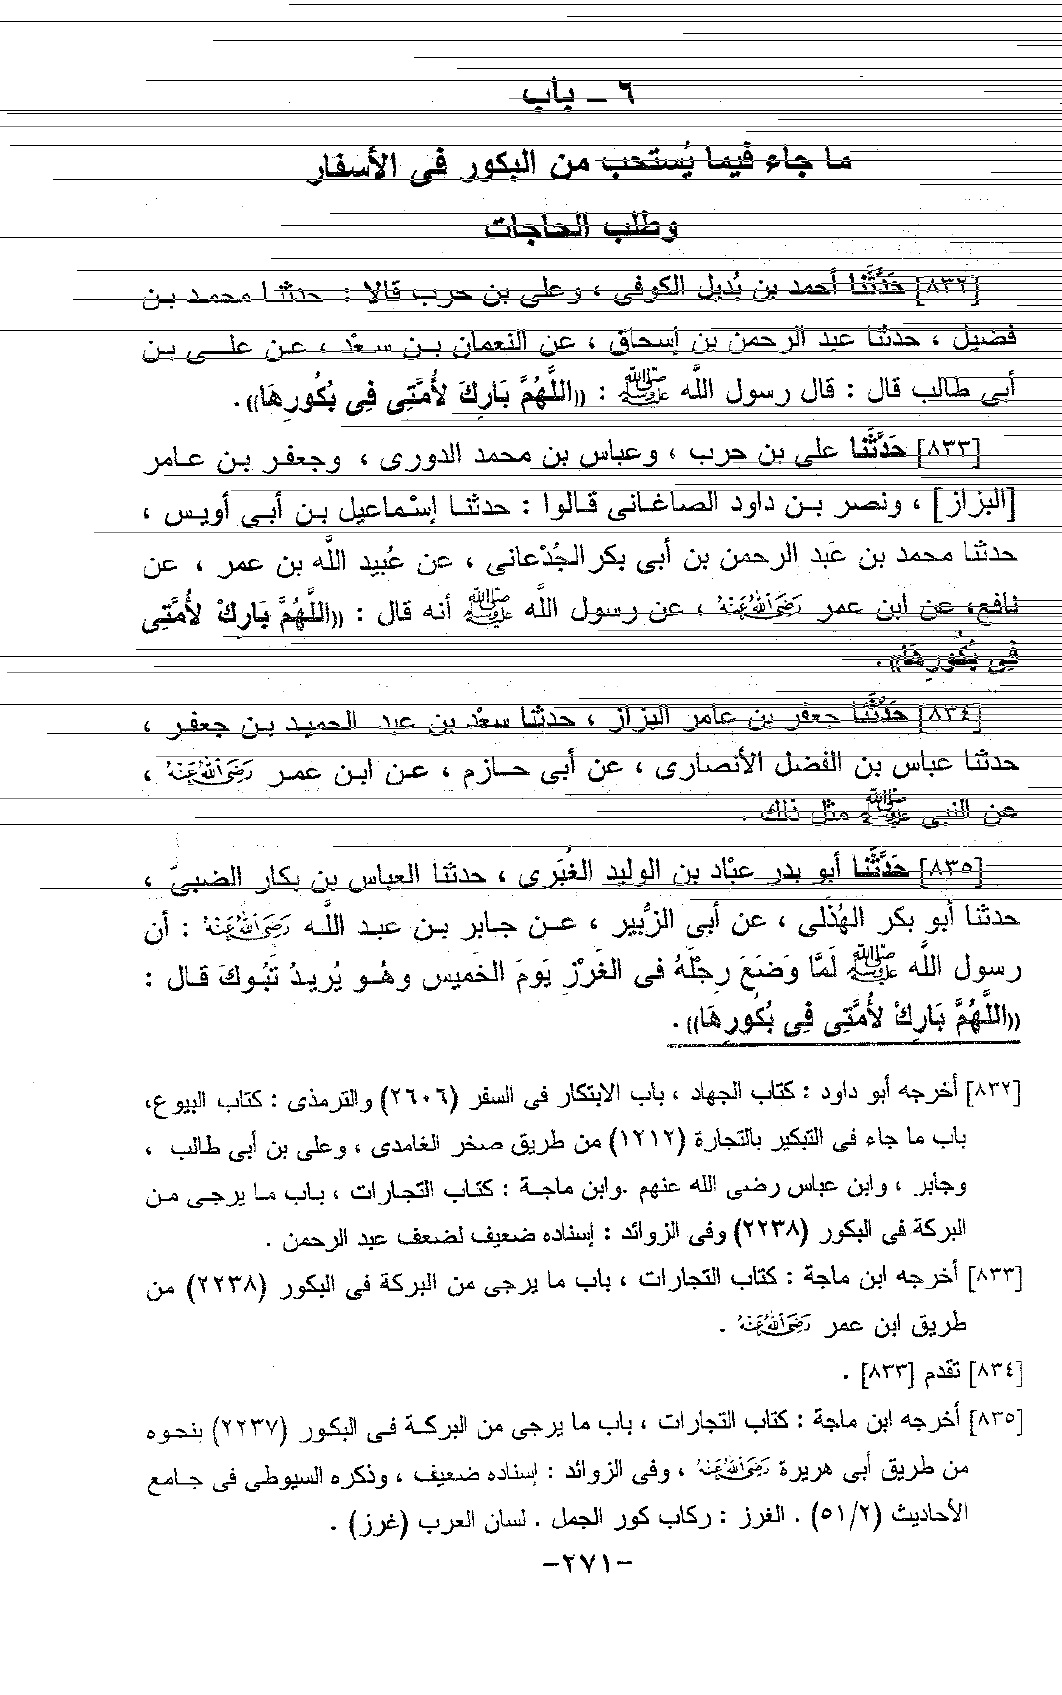 ٦ – باب
ما جاء فيما يُستحب من البكور فى الأسفار
وطلب الحاجات
[٨٣٢] حَدَّثَنَا أحمد بن بُديل الكوفى ، وعلى بن حرب قالا : حدثنا محمد بن
فضيل ، حدثنا عبد الرحمن بن إسحاق ، عن النعمان بن سعْد ، عن على بن
أبى طالب قال : قال رسول اللَّه ﷺ : ((اللَّهُمَّ بَارِكَ لأُمَّتِى فِى بُكُورِهَا)).
[٨٣٣] حَدَّثَنَا على بن حرب ، وعباس بن محمد الدورى ، وجعفر بن عامر
[البزاز] ، ونصر بن داود الصاغانى قالوا : حدثنا إسْماعيل بن أبى أويس ،
حدثنا محمد بن عَبد الرحمن بن أبى بكر الجُدْعانى ، عن عُبيد اللَّه بن عمر ، عن
نافع، عن ابن عمر رَضِىَ اللَّهُ عَنْهُ ، عن رسول اللَّه ﷺ أنه قال : ((اللَّهُمَّ بَارِكْ لأُمَّتِى
فِى بُكُورِهَا)).
[٨٣٤] حَدَّثَنَا جعفر بن عامر البزاز ، حدثنا سعْد بن عبد الحميد بن جعفر ،
حدثنا عباس بن الفضل الأنصارى ، عن أبى حازم ، عن ابن عمر رَضِىَ اللَّهُ عَنْهُ ،
عن النبى ﷺ مثل ذلك .
[٨٣٥] حَدَّثَنَا أبو بدر عبْاد بن الوليد الغُبَرى ، حدثنا العباس بن بكار الضبىّ ،
حدثنا أبو بكر الهُذَلى ، عن أبى الزُّبير ، عن جابر بن عبد اللَّه رَضِىَ اللَّهُ عَنْهُ : أن
رسول اللَّه ﷺ لَمَّا وَضَعَ رِجْلَهُ فى الغَرْزِ يَومَ الخَميس وهُو يُريدُ تَبُوكَ قال :
((اللَّهُمَّ بَارِكْ لأُمَّتِى فِى بُكُورِهَا)).
[٨٣٢] أخرجه أبو داود : كتاب الجهاد ، باب الابتكار فى السفر (٢٦٠٦) والترمذى : كتاب البيوع،
باب ما جاء فى التبكير بالتجارة (١٢١٢) من طريق صخر الغامدى ، وعلى بن أبى طالب ،
وجابر ، وابن عباس رضى الله عنهم .وابن ماجة : كتاب التجارات ، باب ما يرجى من
البركة فى البكور (٢٢٣٨) وفى الزوائد : إسناده ضعيف لضعف عبد الرحمن .
[٨٣٣] أخرجه ابن ماجة : كتاب التجارات ، باب ما يرجى من البركة فى البكور (٢٢٣٨) من
طريق ابن عمر رَضِىَ اللَّهُ عَنْهُ .
[٨٣٤] تقدم [٨٣٣] .
[٨٣٥] أخرجه ابن ماجة : كتاب التجارات ، باب ما يرجى من البركة فى البكور (٢٢٣٧) بنحوه
من طريق أبى هريرة رَضِىَ اللَّهُ عَنْهُ ، وفى الزوائد : إسناده ضعيف ، وذكره السيوطى فى جامع
الأحاديث (٥١/٢) . الغرز : ركاب كور الجمل . لسان العرب (غرز) .
-٢٧١-